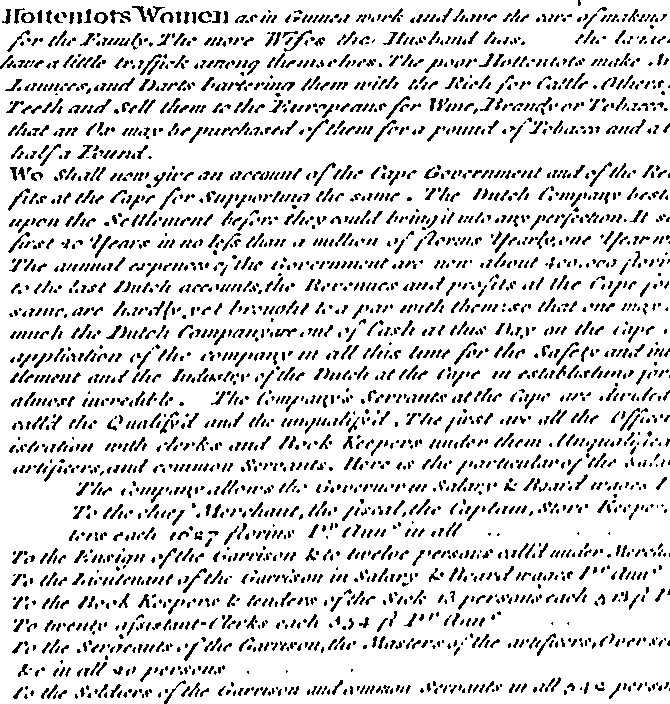 Hottentots Women as in Guinea work and have the care of making
for the Family. The more Wifes the Husband has, the lazier
have a little traffick among themselves. The poor Hottentots make
Launces, and Darts bartering them with the Rich for Cattle. Others
Teeth and Sell them to the Europeans for Wine, Brandy or Tobacco.
that an Ox may be purchased of them for a pound of Tobacco and a
half a Pound.
We shall now give an account of the Cape Government and of the
fits at the Cape for Supporting the same. The Dutch Company
upon the Settlement before they could bring it into any perfection. It
first 20 Years in no less than a million of florins Yearly, one Year
The annual expences of the Government are now about 400.000
to the last Dutch accounts, the Revenues and profits at the Cape for
same, are hardly yet brought to a par with them: so that one may
much the Dutch Company are out of Cash at this Day on the Cape
application of the company in all this time for the Safety and
tlement and the Industry of the Dutch at the Cape in establishing
almost incredible. The Company's Servants at the Cape are divided
call'd the Qualifi'd and the unqualifi'd. The first are all the
istration with clerks and Book Keepers under them Unqualified
artificers, and common Servants. Here is the particular of the
The Company allows the Governor in Salary & Board wages
To the chief Merchant, the fiscal, the Captain, Store
ters each 1627 florins Pr. Annm. in all
To the Ensign of the Garrison & to twelve persons call'd under
To the Lieutenant of the Garrison in Salary & Board wages Pr. Annm.
To the Book Keepers & tenders of the Sick 13 persons each
To twenty assistant Clerks each 354 fl Pr. Annm.
To the Sergeants of the Garrison, the Masters of the artificers,
&c in all 20 persons
To the Soldiers of the Garrison and common Servants in all